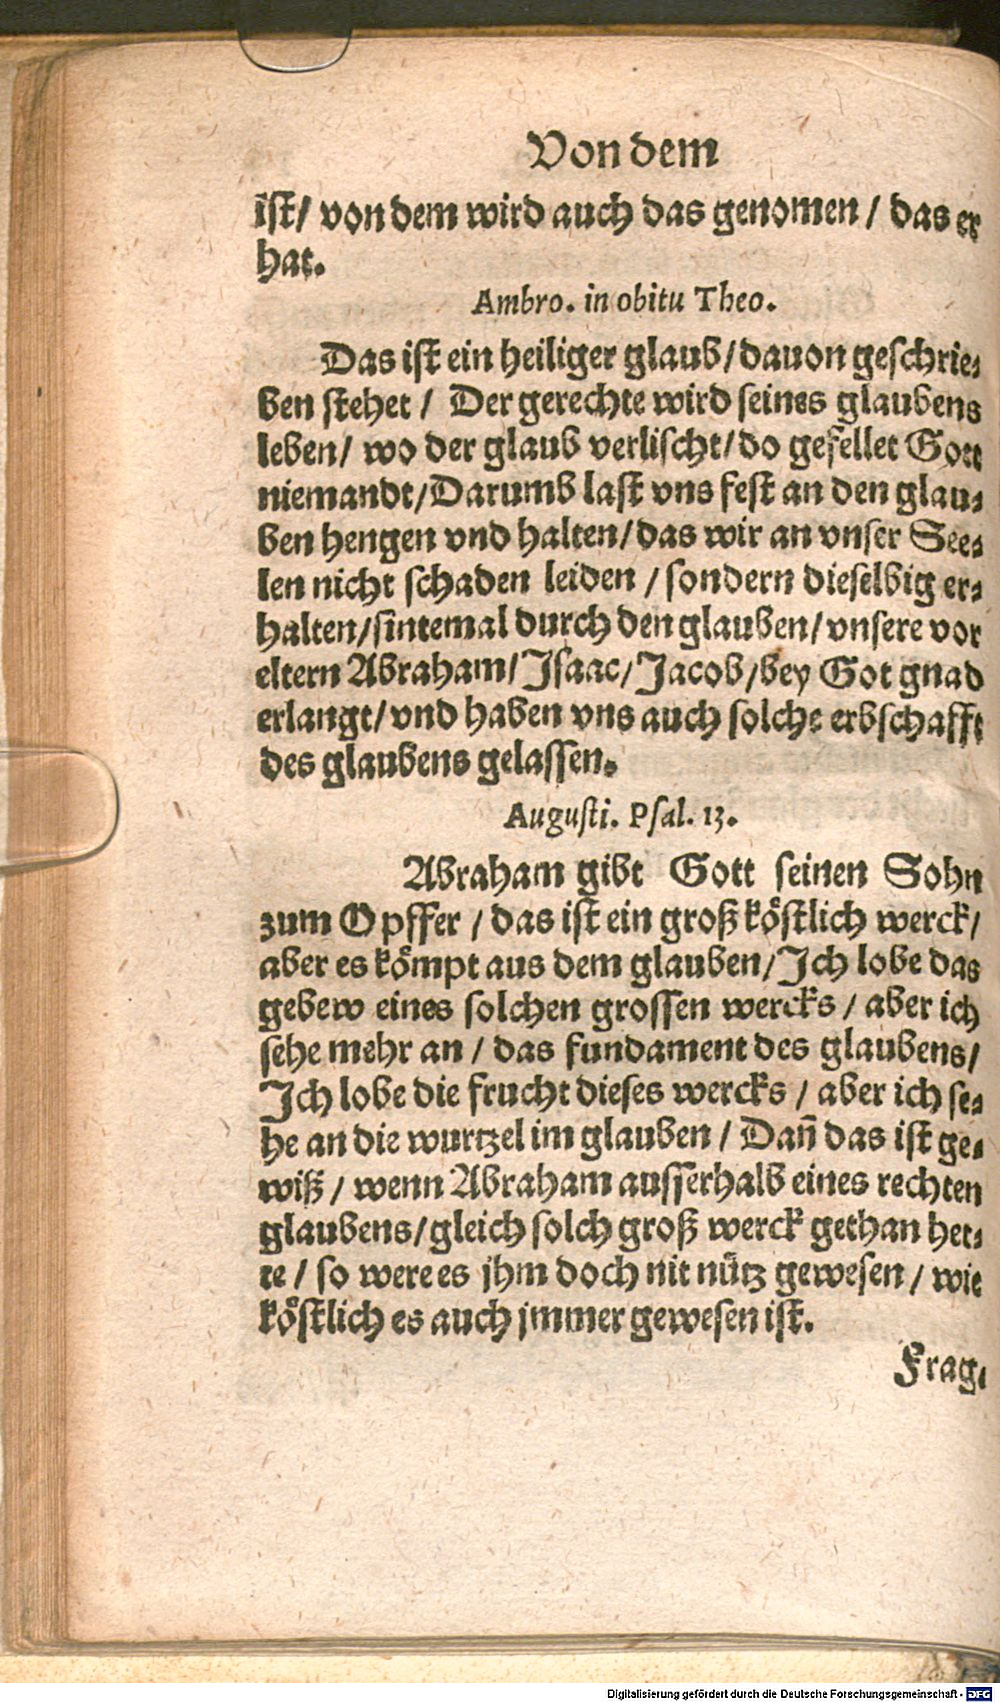 Von dem
ist/ von dem wird auch das genomen / das er
hat.
Ambro. in obitu Theo.
Das ist ein heiliger glaub/dauon geschrie⸗
ben stehet / Der gerechte wird seines glaubens
leben/ wo der glaub verlischt/do gefellet Gott
niemandt/Darumb last vns fest an den glau⸗
ben hengen vnd halten/das wir an vnser See⸗
len nicht schaden leiden / sondern dieselbig er⸗
halten/sintemal durch den glauben/vnsere vor
eltern Abraham/Isaac/Jacob/bey Got gnad
erlangt/vnd haben vns auch solche erbschafft
des glaubens gelassen.
Augusti. Psal. 13.
Abraham gibt Gott seinen Sohn
zum Opffer / das ist ein groß köstlich werck/
aber es kömpt aus dem glauben/Ich lobe das
gebew eines solchen grossen wercks / aber ich
sehe mehr an / das fundament des glaubens/
Ich lobe die frucht dieses wercks / aber ich se⸗
he an die wurtzel im glauben / Dañ das ist ge⸗
wiß / wenn Abraham ausserhalb eines rechten
glaubens/gleich solch groß werck gethan het⸗
te / so were es jhm doch nit nütz gewesen / wie
köstlich es auch jmmer gewesen ist.
Frag.
Digitalisierung gefördert durch die Deutsche Forschungsgemeinschaft - DFG